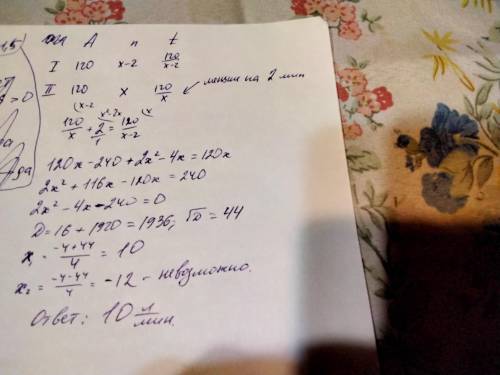 A n t
I 120 x-2 120/x-2
II 120 x 120/x ← меньше на 2 мин
(x-2 x²-2x (x
120/x + 2/1 = 120/x-2
120x-240+2x²-4x=120x
2x²+116x-120x=240
2x²-4x-240=0
D=16+1920=1936; √D=44
x₁=-4+44/4=10
x₂=-4-44/4=-12-невозможно.
Ответ: 10 л/мин.
=0